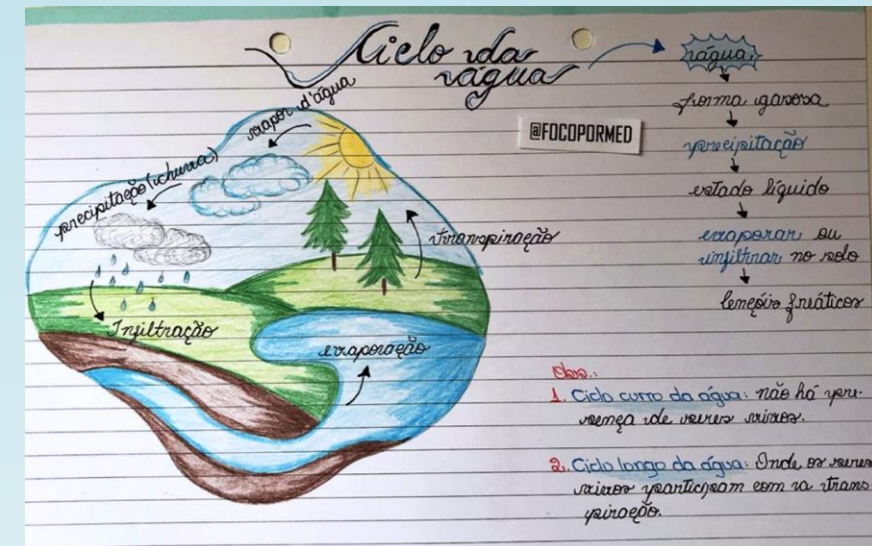 Ciclo da
água
@FOCOPORMED
vapor d'água
precipitação (chuva)
transpiração
Infiltração
evaporação
água
forma gasosa
precipitação
estado líquido
evaporar ou
infiltrar no solo
lençóis freáticos
Obs.:
1. Ciclo curto da água: não há pre-
sença de seres vivos.
2. Ciclo longo da água: Onde os seres
vivos participam com a trans-
piração.